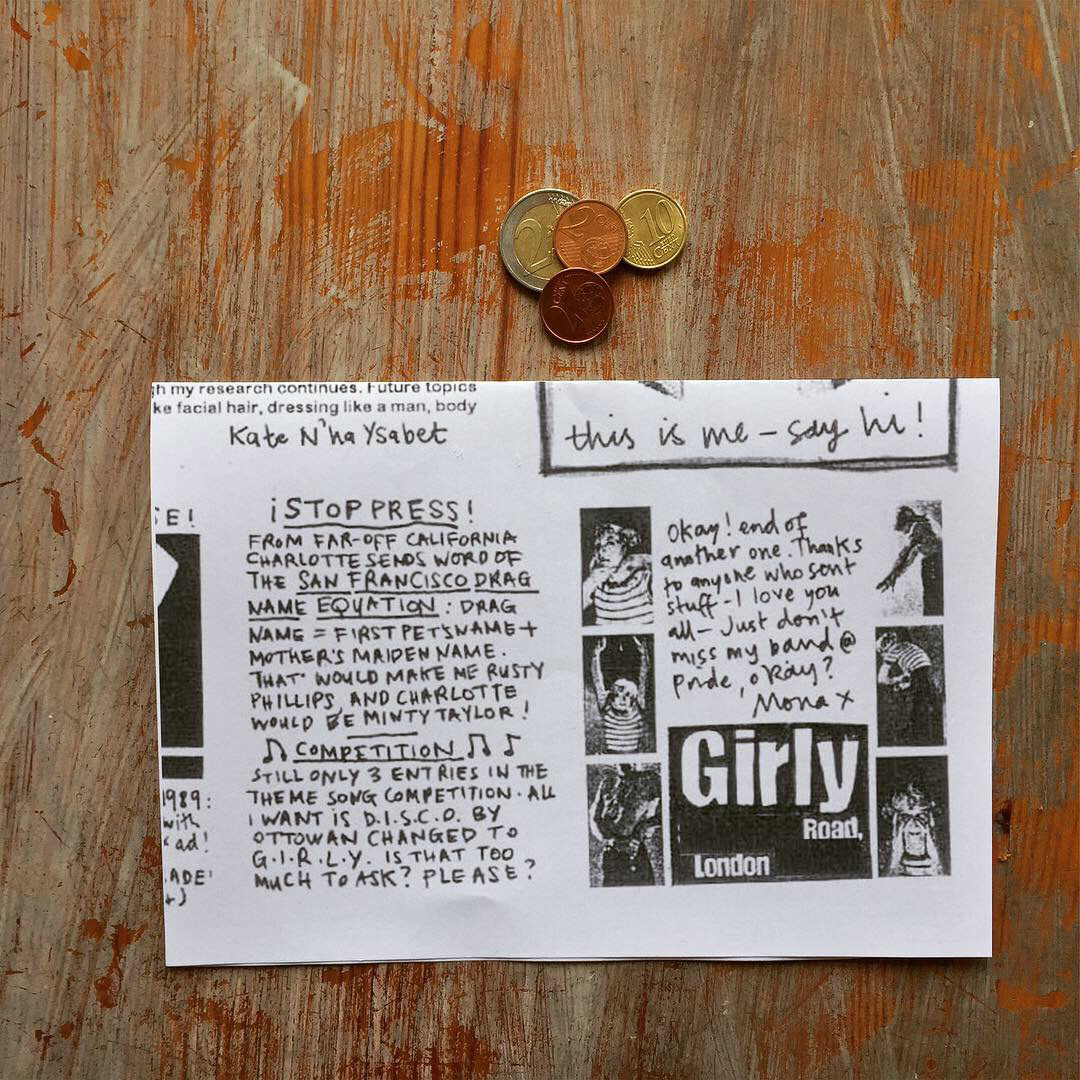 2
2
CENT
10
CENT
2
CENT
my research continues. Future topics
facial hair, dressing like a man, body
Kate N'ha Ysabet
this is me – say hi!
¡STOP PRESS!
FROM FAR-OFF CALIFORNIA
CHARLOTTE SENDS WORD OF
THE SAN FRANCISCO DRAG
NAME EQUATION: DRAG
NAME = FIRST PET'S NAME +
MOTHER'S MAIDEN NAME.
THAT WOULD MAKE ME RUSTY
PHILLIPS, AND CHARLOTTE
WOULD BE MINTY TAYLOR!
COMPETITION
STILL ONLY 3 ENTRIES IN THE
THEME SONG COMPETITION. ALL
I WANT IS D.I.S.C.O. BY
OTTOWAN CHANGED TO
G.I.R.L.Y. IS THAT TOO
MUCH TO ASK? PLEASE?
1989:
with
ad!
Okay! end of
another one. Thanks
to anyone who sent
stuff – I love you
all – Just don't
miss my band @
Pride, okay?
Mona x
Girly
Road,
London